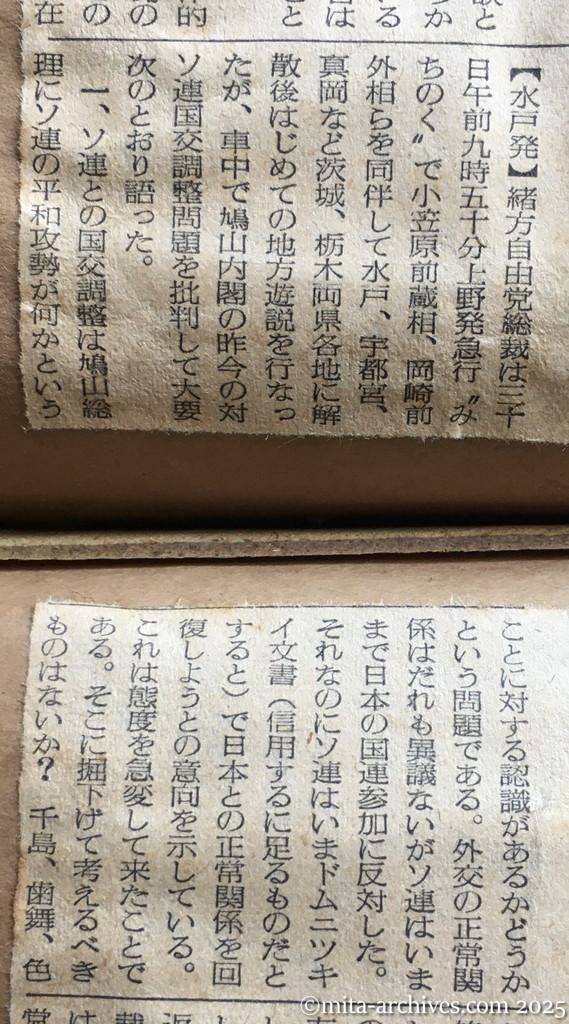 【水戸発】緒方自由党総裁は三十
日午前九時五十分上野発急行〝み
ちのく〟で小笠原前蔵相、岡崎前
外相らを同伴して水戸、宇都宮、
真岡など茨城、栃木両県各地に解
散後はじめての地方遊説を行なっ
たが、車中で鳩山内閣の昨今の対
ソ連国交調整問題を批判して大要
次のとおり語った。
一、ソ連との国交調整は鳩山総
理にソ連の平和攻勢が何かという
ことに対する認識があるかどうか
という問題である。外交の正常関
係はだれも異議ないがソ連はいま
まで日本の国連参加に反対した。
それなのにソ連はいまドムニツキ
イ文書（信用するに足るものだと
すると）で日本との正常関係を回
復しようとの意向を示している。
これは態度を急変して来たことで
ある。そこに掘下げて考えるべき
ものはないか？　千島、歯舞、色
©mita-archives.com 2025